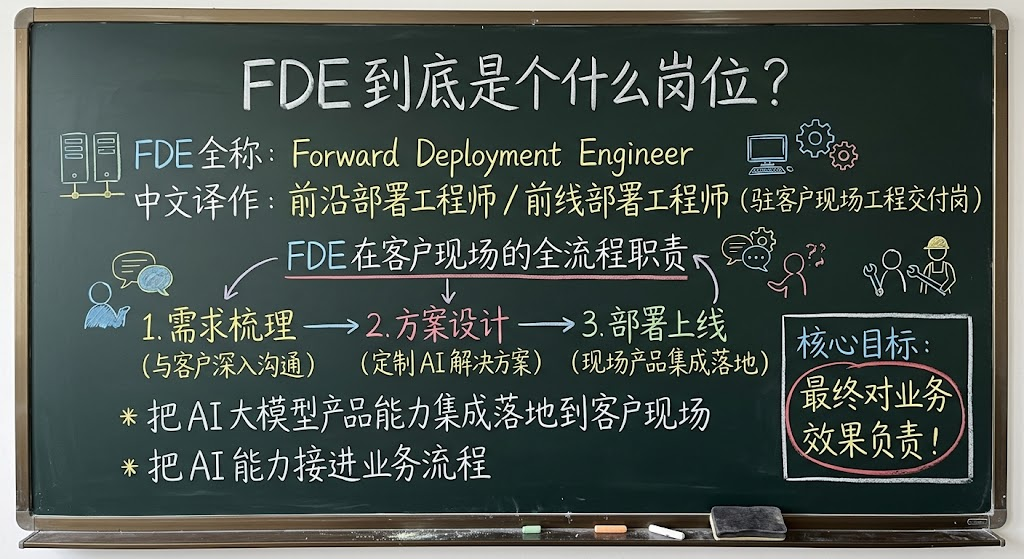 FDE 到底是个什么岗位？
FDE 全称：Forward Deployment Engineer
中文译作：前沿部署工程师 / 前线部署工程师（驻客户现场工程交付岗）
FDE 在客户现场的全流程职责
1. 需求梳理
（与客户深入沟通）
2. 方案设计
（定制 AI 解决方案）
3. 部署上线
（现场产品集成落地）
* 把 AI 大模型产品能力集成落地到客户现场
* 把 AI 能力接进业务流程
核心目标：
最终对业务
效果负责！
??